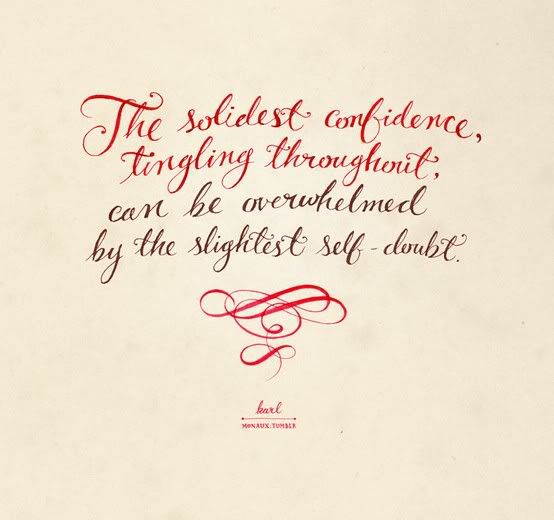 The solidest confidence,
tingling throughout,
can be overwhelmed
by the slightest self-doubt.
karl
MONAUX.TUMBLR